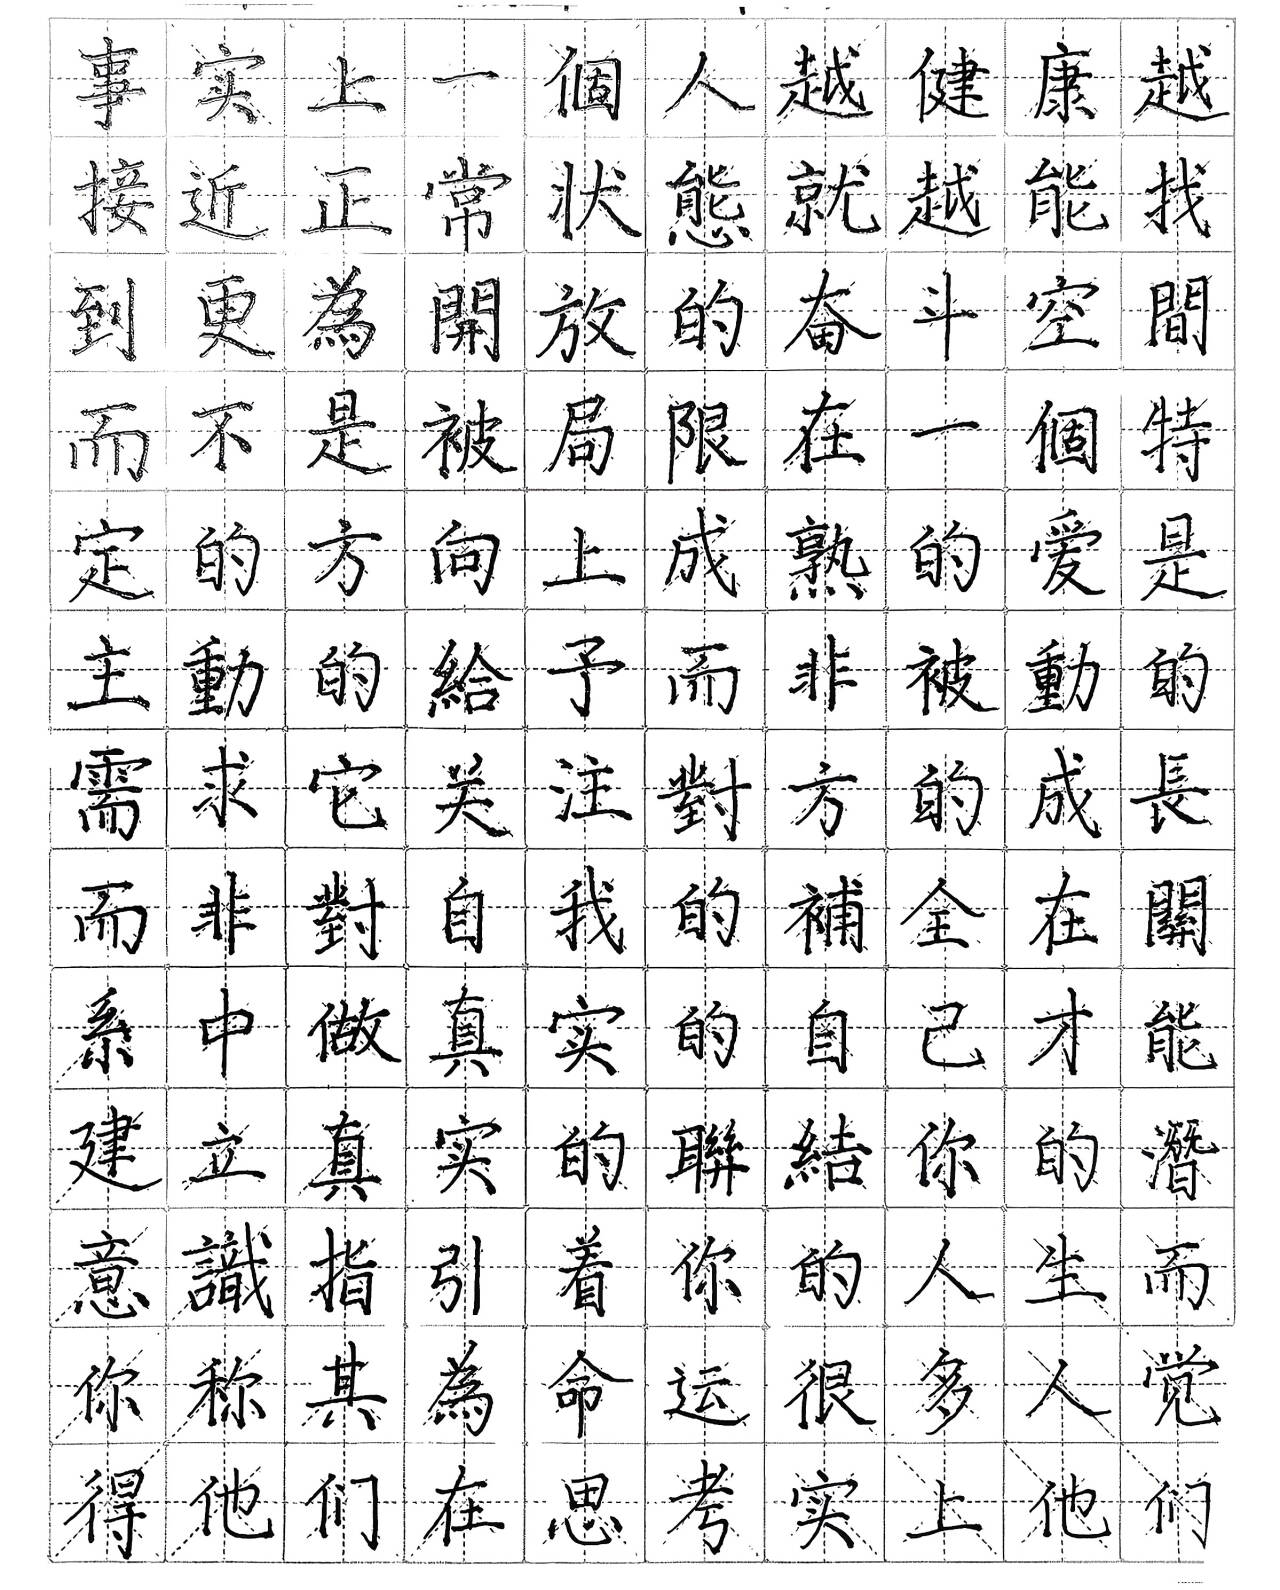 事实上一個人越健康越
接近正常状態就越能找
到更為開放的奋斗空間
而不是被局限在一個特
定的方向上成熟的爱是
主動的給予而非被動的
需求它关注對方的成長
而非對自我的補全在關
系中做真实的自己才能
建立真实的聯結你的潛
意識指引着你的人生而
你称其為命运很多人觉
得他们在思考实上他们